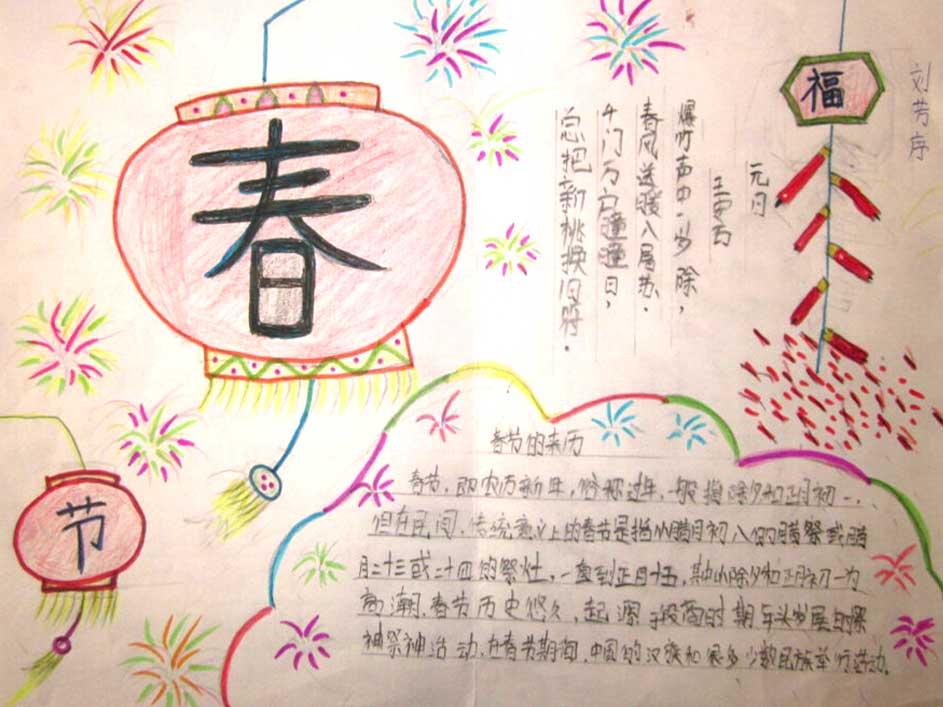 春
节
福
刘芳序
元日
王安石
爆竹声中一岁除，
春风送暖入屠苏.
千门万户瞳瞳日，
总把新桃换旧符.
春节的来历
春节，即农历新年，俗称过年，一般指除夕和正月初一，
但在民间，传统意义上的春节是指从腊月初八的腊祭或腊
月二十三或二十四的祭灶，一直到正月十五，其中以除夕和正月初一为
高潮.春节历史悠久，起源于殷商时期年头岁尾的祭
神祭神活动，在春节期间，中国的汉族和很多少数民族举行活动。